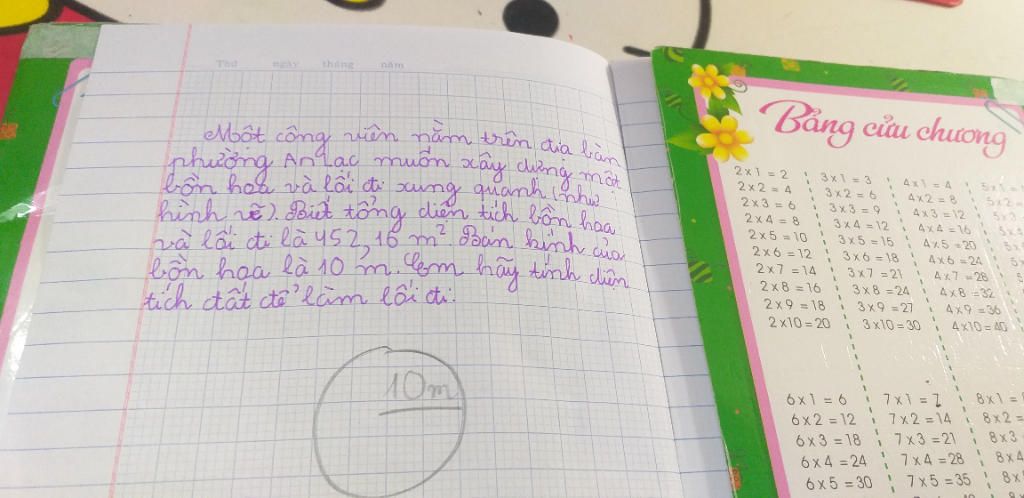 Thứ ngày tháng năm
Một công viên nằm trên địa bàn
phường An Lạc muốn xây dựng một
bồn hoa và lối đi xung quanh (như
hình vẽ). Biết tổng diện tích bồn hoa
và lối đi là 452,16 m². Bán kính của
bồn hoa là 10 m. Em hãy tính diện
tích đất để làm lối đi.
10m
Bảng cửu chương
2 x 1 = 2 3 x 1 = 3 4 x 1 = 4 5 x 1 =
2 x 2 = 4 3 x 2 = 6 4 x 2 = 8 5 x 2
2 x 3 = 6 3 x 3 = 9 4 x 3 = 12 5 x
2 x 4 = 8 3 x 4 = 12 4 x 4 = 16 5 x
2 x 5 = 10 3 x 5 = 15 4 x 5 = 20 5 x
2 x 6 = 12 3 x 6 = 18 4 x 6 = 24 5
2 x 7 = 14 3 x 7 = 21 4 x 7 = 28 5
2 x 8 = 16 3 x 8 = 24 4 x 8 = 32
2 x 9 = 18 3 x 9 = 27 4 x 9 = 36
2 x 10 = 20 3 x 10 = 30 4 x 10 = 40
6 x 1 = 6 7 x 1 = 7 8 x 1 =
6 x 2 = 12 7 x 2 = 14 8 x 2 =
6 x 3 = 18 7 x 3 = 21 8 x 3
6 x 4 = 24 7 x 4 = 28 8 x 4
6 x 5 = 30 7 x 5 = 35 8 x